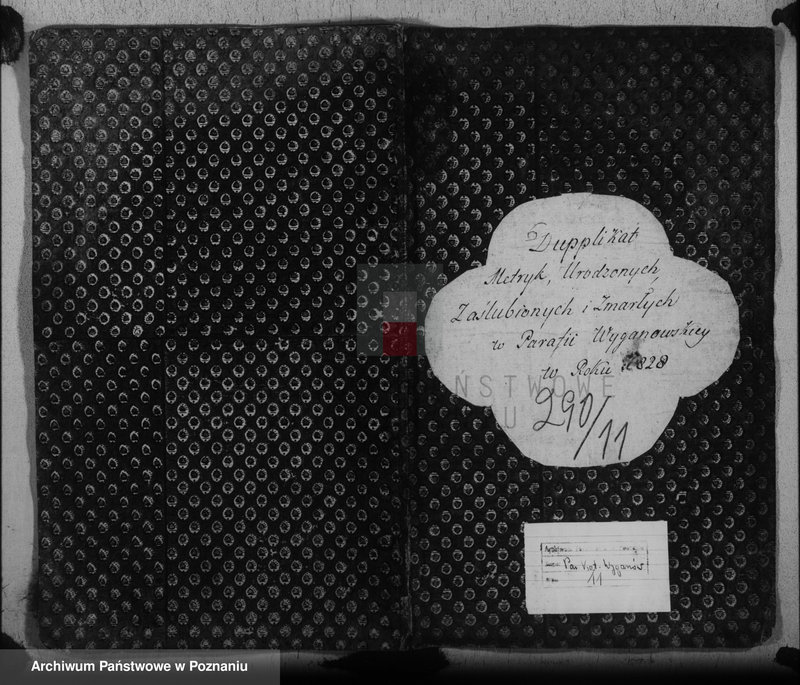 Dupplikat
Metryk, Urodzonych
Zaślubionych i Zmarłych
w Parafii Wyganowskiey
w Roku 1828
290/11
Par. kat. Wyganów
11
Archiwum Państwowe w Poznaniu